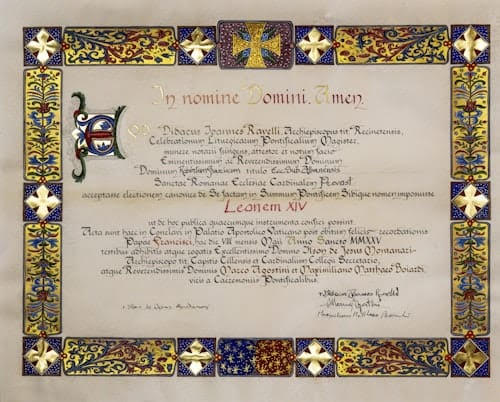 In nomine Domini. Amen
Didacus Ioannes Ravelli Archiepiscopus tit. Recinetensis,
Celebrationum Liturgicarum Pontificalium Magister,
munere notarii fungens, attestor et notum facio
Eminentissimum ac Reverendissimum Dominum
Dominum titulo Ecc. Sub. Albanensis
Sanctae Romanae Ecclesiae Cardinalem Prevost
acceptasse electionem canonice de Se factam in Summum Pontificem Sibique nomen imposuisse
Leonem XIV
ut de hoc publica quaecumque instrumenta confici possint.
Acta sunt haec in Conclavi in Palatio Apostolico Vaticano post obitum felicis recordationis
Papae Francisci, hac die VIII mensis Maii Anno Sancto MMXXV
testibus adhibitis atque rogatis Excellentissimo Domino Ilson de Jesus Montanari
Archiepiscopo tit. Capitis Cillensis et Cardinalium Collegii Secretario,
atque Reverendissimis Dominis Marco Agostini et Maximiliano Matthaeo Boiardi,
viris a Caeremoniis Pontificalibus.